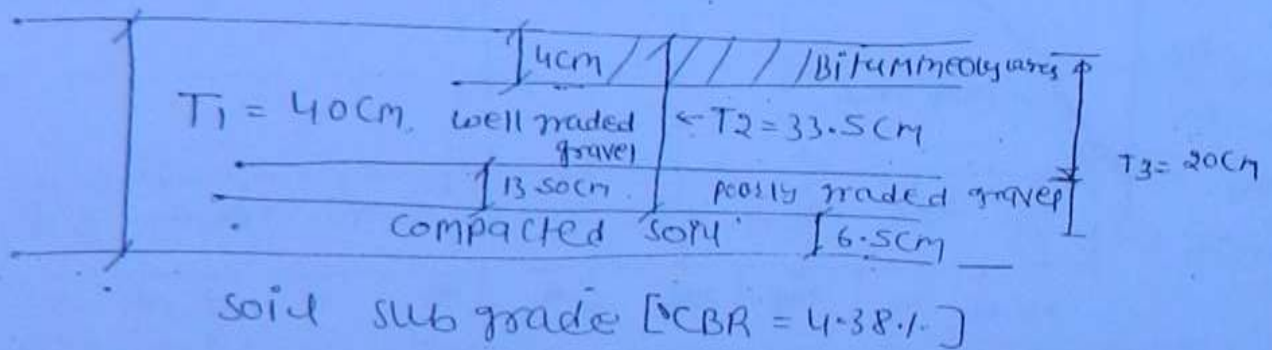 4cm Bitumineoylares
T1 = 40cm. well graded ←T2 = 33.5cm
gravel T3= 20cm
13.50cm. poorly graded gravel
compacted soil 6.5cm
soil sub grade [CBR = 4.38%]